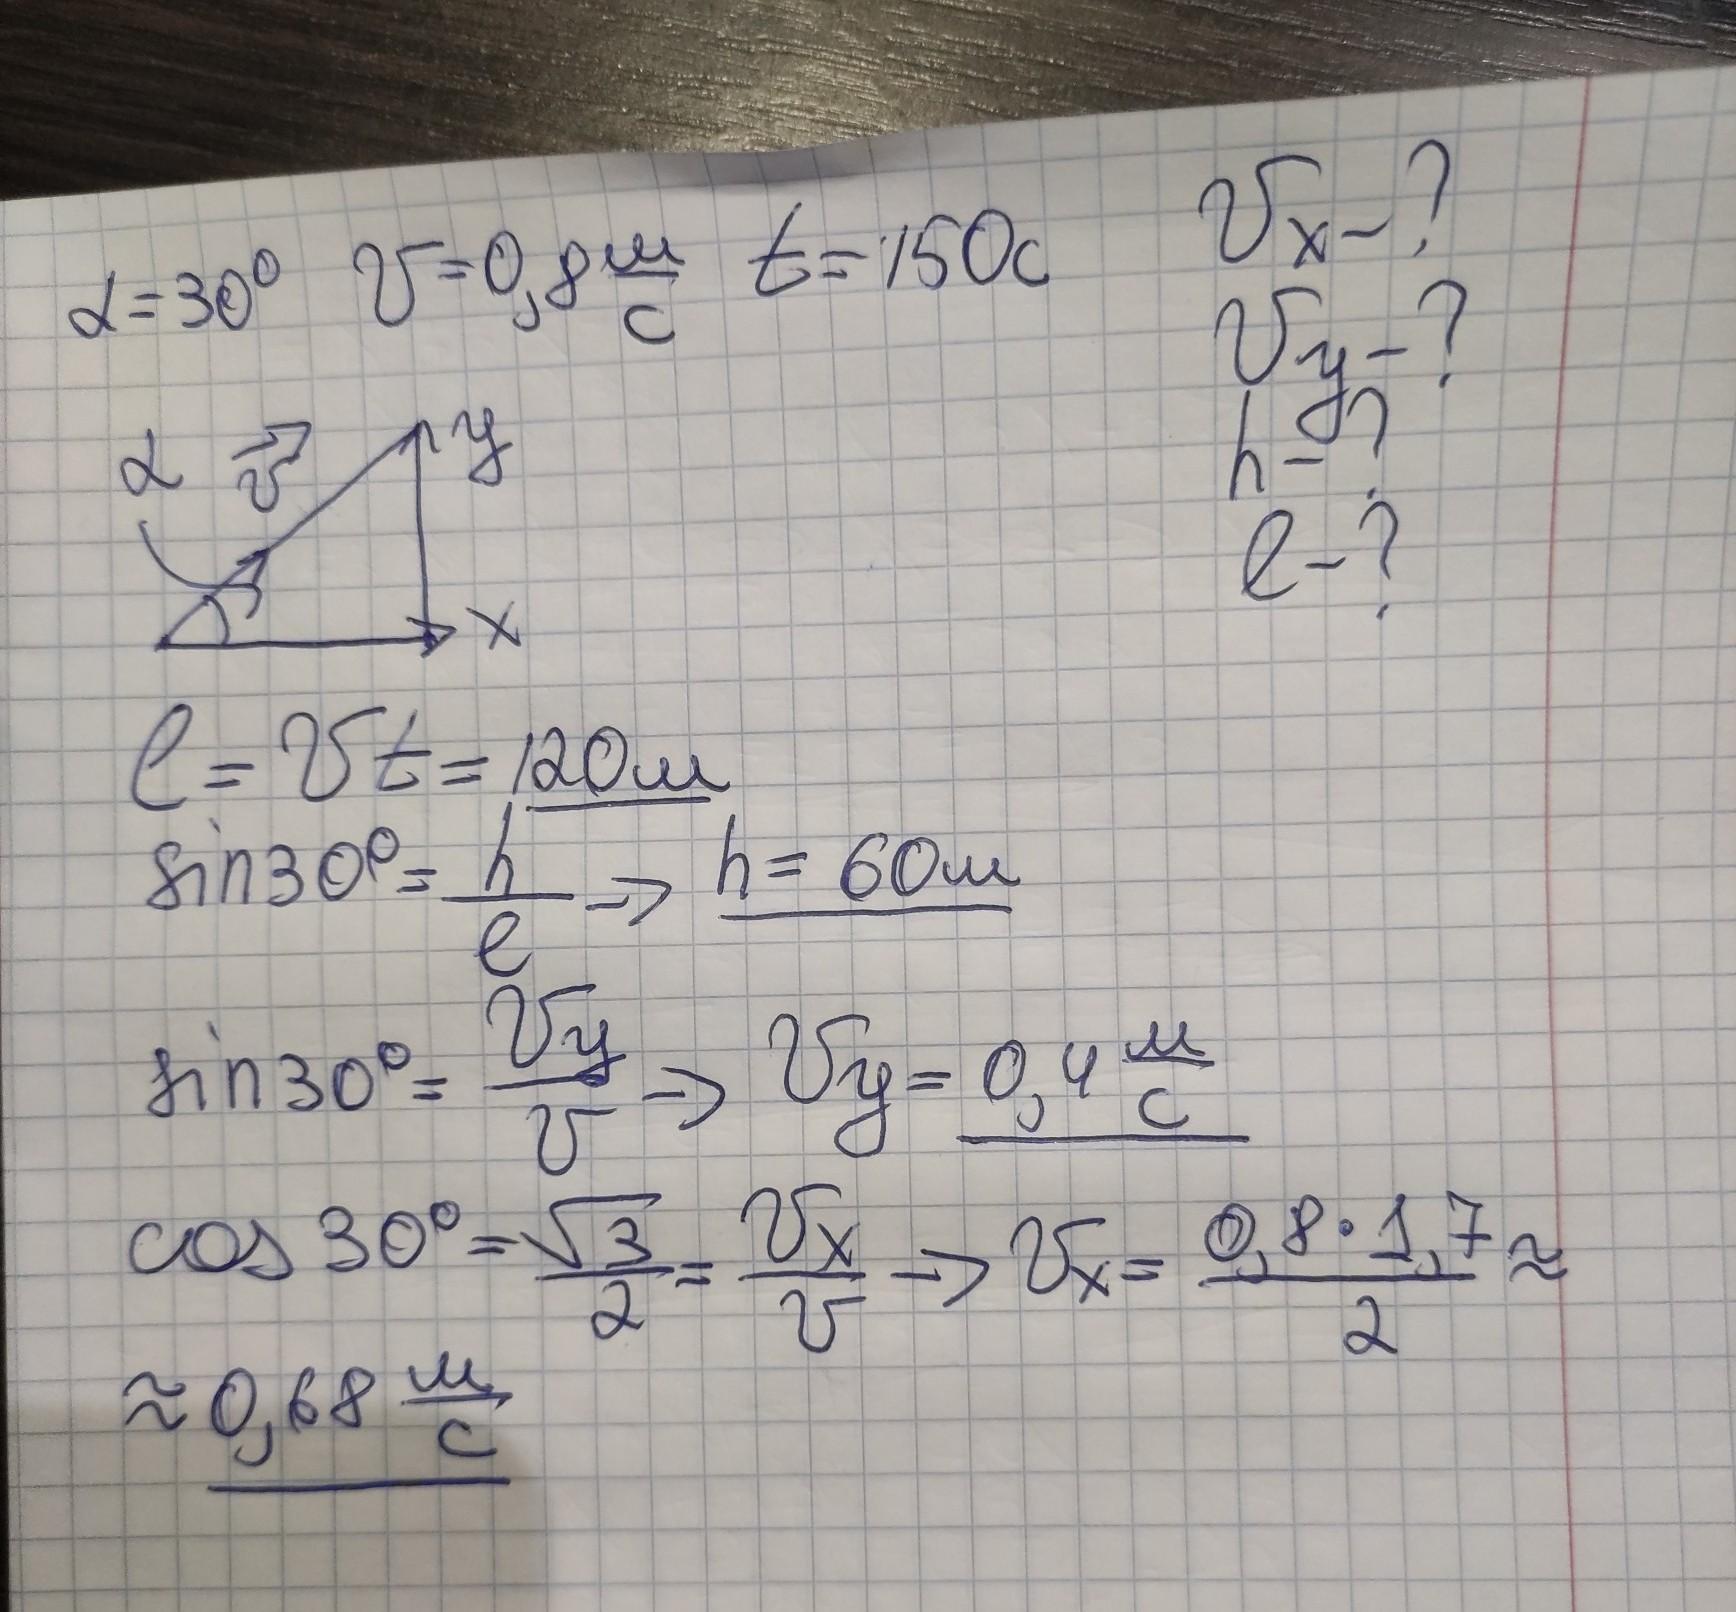 α=30° v=0,8 м/с t=150с
vx-?
vy-?
h-?
l-?
α v⃗ y
x
l=vt=120м
sin30°=h/l -> h=60м
sin30°=vy/v -> vy=0,4 м/с
cos30°=√3/2=vx/v -> vx=0,8·1,7/2≈
≈0,68 м/с